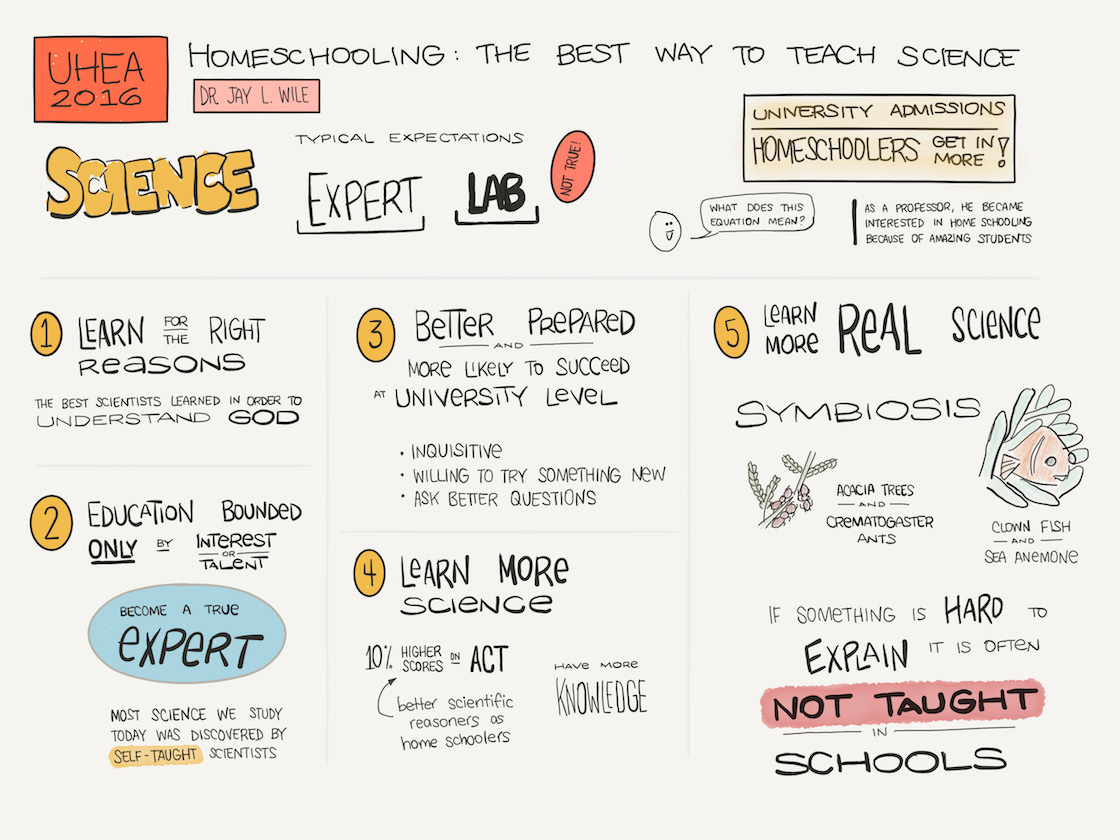 UHEA
2016
HOMESCHOOLING: THE BEST WAY TO TEACH SCIENCE
DR. JAY L. WILE
SCIENCE
TYPICAL EXPECTATIONS
EXPERT LAB
NOT TRUE!
UNIVERSITY ADMISSIONS
HOMESCHOOLERS GET IN MORE!
WHAT DOES THIS
EQUATION MEAN?
AS A PROFESSOR, HE BECAME
INTERESTED IN HOME SCHOOLING
BECAUSE OF AMAZING STUDENTS
1 LEARN FOR THE RIGHT
REASONS
THE BEST SCIENTISTS LEARNED IN ORDER TO
UNDERSTAND GOD
2 EDUCATION BOUNDED
ONLY BY INTEREST
OR
TALENT
BECOME A TRUE
EXPERT
MOST SCIENCE WE STUDY
TODAY WAS DISCOVERED BY
SELF-TAUGHT SCIENTISTS
3 BETTER PREPARED
AND
MORE LIKELY TO SUCCEED
AT UNIVERSITY LEVEL
• INQUISITIVE
• WILLING TO TRY SOMETHING NEW
• ASK BETTER QUESTIONS
4 LEARN MORE
SCIENCE
10% HIGHER SCORES ON ACT
better scientific
reasoners as
home schoolers
HAVE MORE
KNOWLEDGE
5 LEARN MORE REAL SCIENCE
SYMBIOSIS
ACACIA TREES
AND
CREMATOGASTER
ANTS
CLOWN FISH
AND
SEA ANEMONE
IF SOMETHING IS HARD TO
EXPLAIN IT IS OFTEN
NOT TAUGHT
IN
SCHOOLS